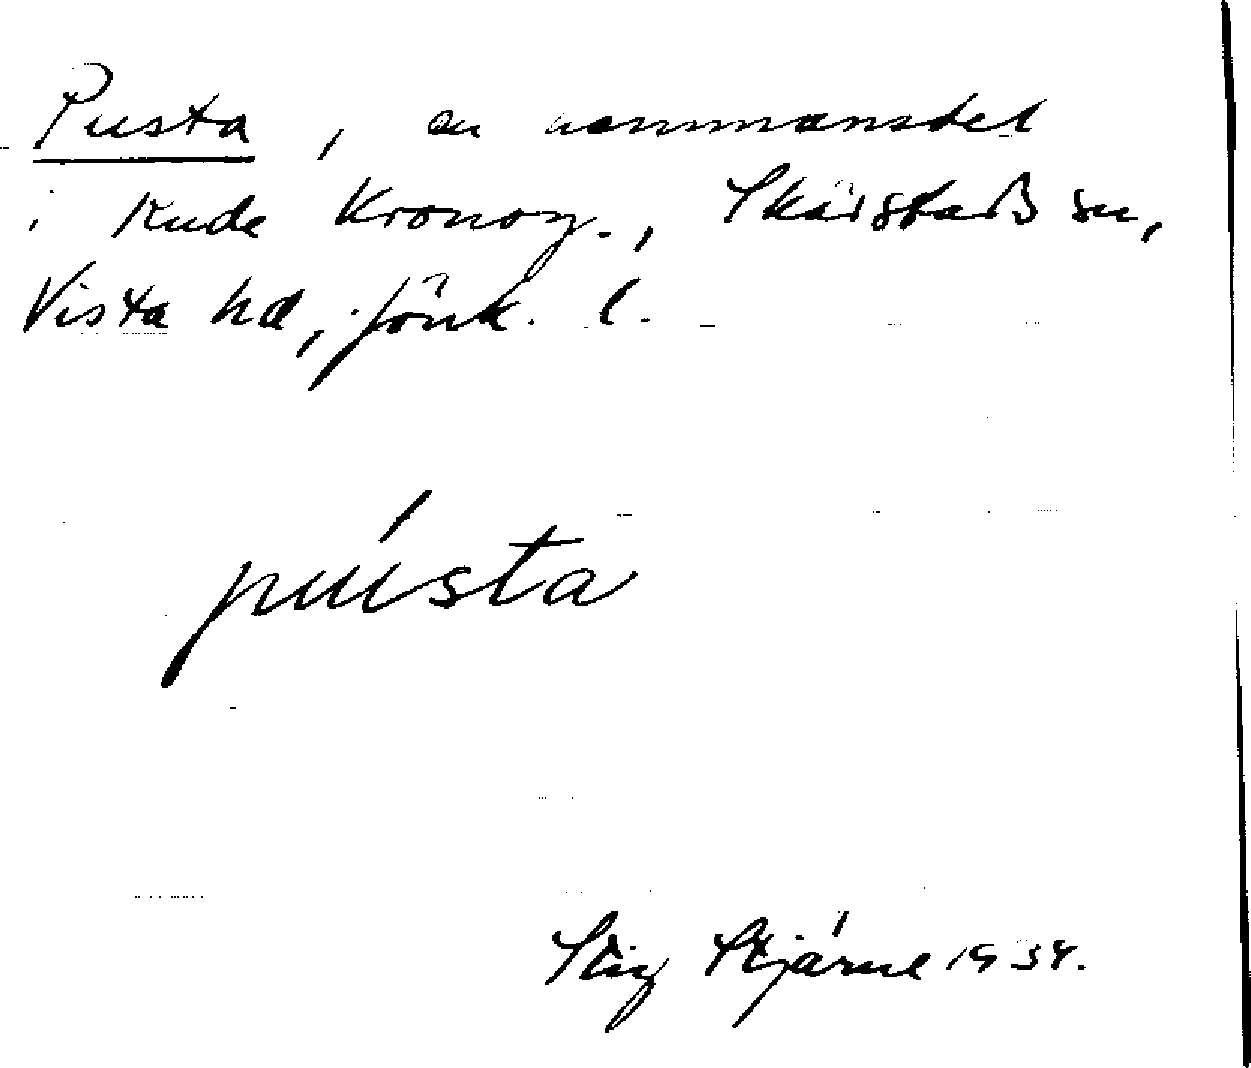 Pusta, en hemmansdel
i Rude Kronog., Skärstads sn,
Vista hd, Jönk. l.
pústa
Stig Stjärne 1934.